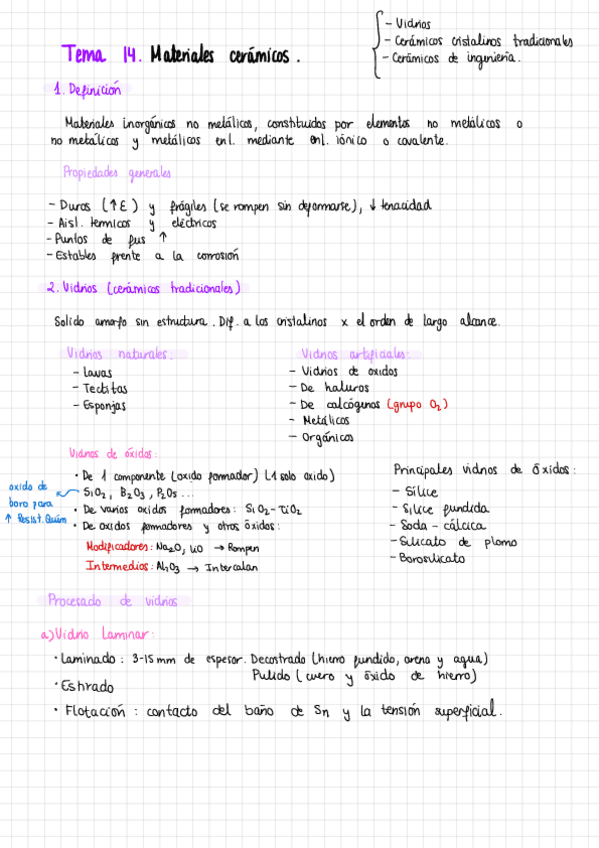 - Vidrios
- Cerámicos cristalinos tradicionales
- Cerámicos de ingeniería.
Tema 14. Materiales cerámicos.
1. Definición
Materiales inorgánicos no metálicos, constituidos por elementos no metálicos o
no metálicos y metálicos enl. mediante enl. iónico o covalente.
Propiedades generales
- Duros (↑ε) y frágiles (se rompen sin deformarse), ↓ tenacidad
- Aisl. termicos y eléctricos
- Puntos de fus ↑
- Estables frente a la corrosión
2. Vidrios (cerámicos tradicionales)
Solido amorfo sin estructura. Dif. a los cristalinos x el orden de largo alcance.
Vidrios naturales:
- Lavas
- Tectitas
- Esponjas
Vidrios artificiales:
- Vidrios de oxidos
- De haluros
- De calcógenos (grupo O2)
- Metálicos
- Orgánicos
Vidrios de óxidos:
· De 1 componente (oxido formador) (1 solo oxido)
SiO2, B2O3, P2O5 ...
oxido de
boro para
↑ Resist. Quím
· De varios oxidos formadores: SiO2-TiO2
· De oxidos formadores y otros óxidos:
Modificadores: Na2O, LiO → Rompen
Intermedios: Al2O3 → Intercalan
Principales vidrios de óxidos:
- Sílice
- Sílice fundida
- Soda - cálcica
- Silicato de plomo
- Borosilicato
Procesado de vidrios
a) Vidrio Laminar:
· Laminado: 3-15 mm de espesor. Decostrado (hierro fundido, arena y agua)
Pulido (cuero y óxido de hierro)
· Estirado
· Flotación: contacto del baño de Sn y la tensión superficial.